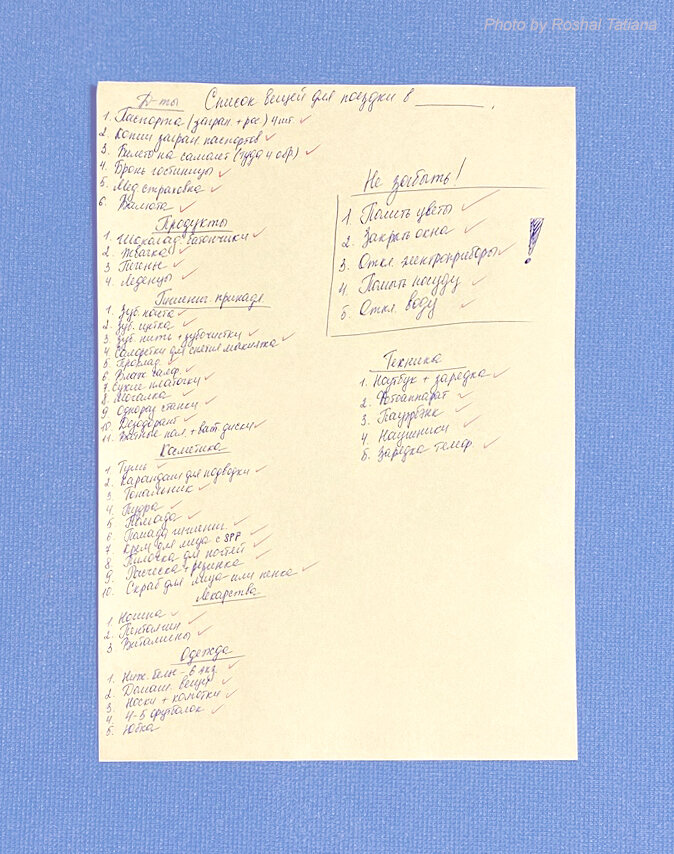 Photo by Roshal Tatiana
Д-ты
Список вещей для поездки в ________.
1. Паспорта (загран. + рос) 4 шт ✓
2. Копии загран. паспортов ✓
3. Билеты на самолет (туда и обр) ✓
4. Бронь гостиницы ✓
5. Мед страховка ✓
6. Валюта ✓
Продукты
1. Шоколад. батончики ✓
2. Жвачка ✓
3. Печенье ✓
4. Леденцы ✓
Гигиенич. принадл
1. Зуб. паста ✓
2. Зуб. щетка ✓
3. Зуб. нить + зубочистки ✓
4. Салфетки для снятия макияжа ✓
5. Проклад. ✓
6. Влаж. салф. ✓
7. Сухие платочки ✓
8. Мочалка ✓
9. Однораз станки ✓
10. Дезодорант ✓
11. Ватные пал. + ват. диски ✓
Косметика
1. Тушь ✓
2. Карандаш для подводки ✓
3. Тональник ✓
4. Пудра ✓
5. Помада ✓
6. Помада гигиенич. ✓
7. Крем для лица с SPF ✓
8. Пилочка для ногтей ✓
9. Расческа + резинка ✓
10. Скраб для лица или пенка ✓
Лекарства
1. Ношпа ✓
2. Пенталгин ✓
3. Витамины ✓
Одежда
1. Ниж. белье - 6 ✓
2. Домаш. вещи ✓
3. Носки + колготки ✓
4. 4-5 футболок ✓
5. Юбка
Не забыть!
1. Полить цветы ✓
2. Закрыть окна ✓
3. Откл. электроприборы ✓
4. Помыть посуду ✓
5. Откл. воду ✓
!
Техника
1. Ноутбук + зарядка ✓
2. Фотоаппарат ✓
3. Пауэрбэнк ✓
4. Наушники ✓
5. Зарядка телеф. ✓